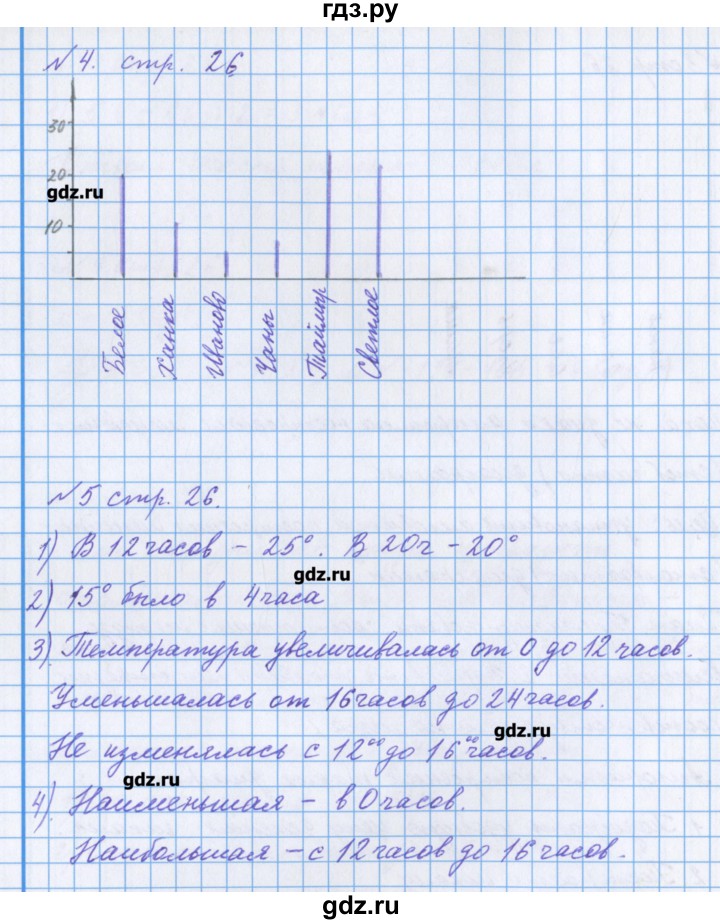 гдз.ру
№ 4. стр. 26
30
20
gdz.ru
10
Белое
Ханка
Иваново
Чаны
Таймыр
Светлое
№ 5 стр. 26.
1) В 12 часов – 25°. В 20ч – 20°
gdz.ru
2) 15° было в 4 часа
3) Температура увеличивалась от 0 до 12 часов.
Уменьшалась от 16 часов до 24 часов.
gdz.ru
Не изменялась с 12⁰⁰ до 16⁰⁰ часов.
gdz.ru
4) Наименьшая – в 0 часов.
Наибольшая – с 12 часов до 16 часов.
gdz.ru